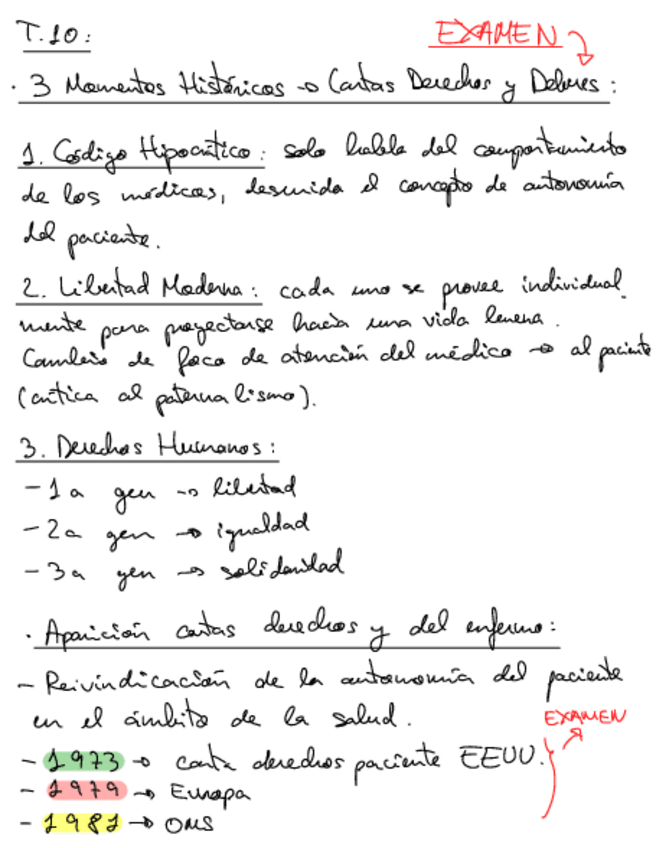 T.10:
EXAMEN
· 3 Momentos Históricos → Cartas Derechos y Deberes:
1. Código Hipocrático: solo habla del comportamiento
de los médicos, descuida el concepto de autonomía
del paciente.
2. Libertad Moderna: cada uno se provee individual
mente para proyectarse hacia una vida buena.
Cambio de foco de atención del médico → al paciente
(crítica al paternalismo).
3. Derechos Humanos:
- 1a gen → libertad
- 2a gen → igualdad
- 3a gen → solidaridad
· Aparición cartas derechos y del enfermo:
- Reivindicación de la autonomía del paciente
en el ámbito de la salud.
EXAMEN
- 1973 → carta derechos paciente EEUU.
- 1979 → Europa
- 1981 → OMS